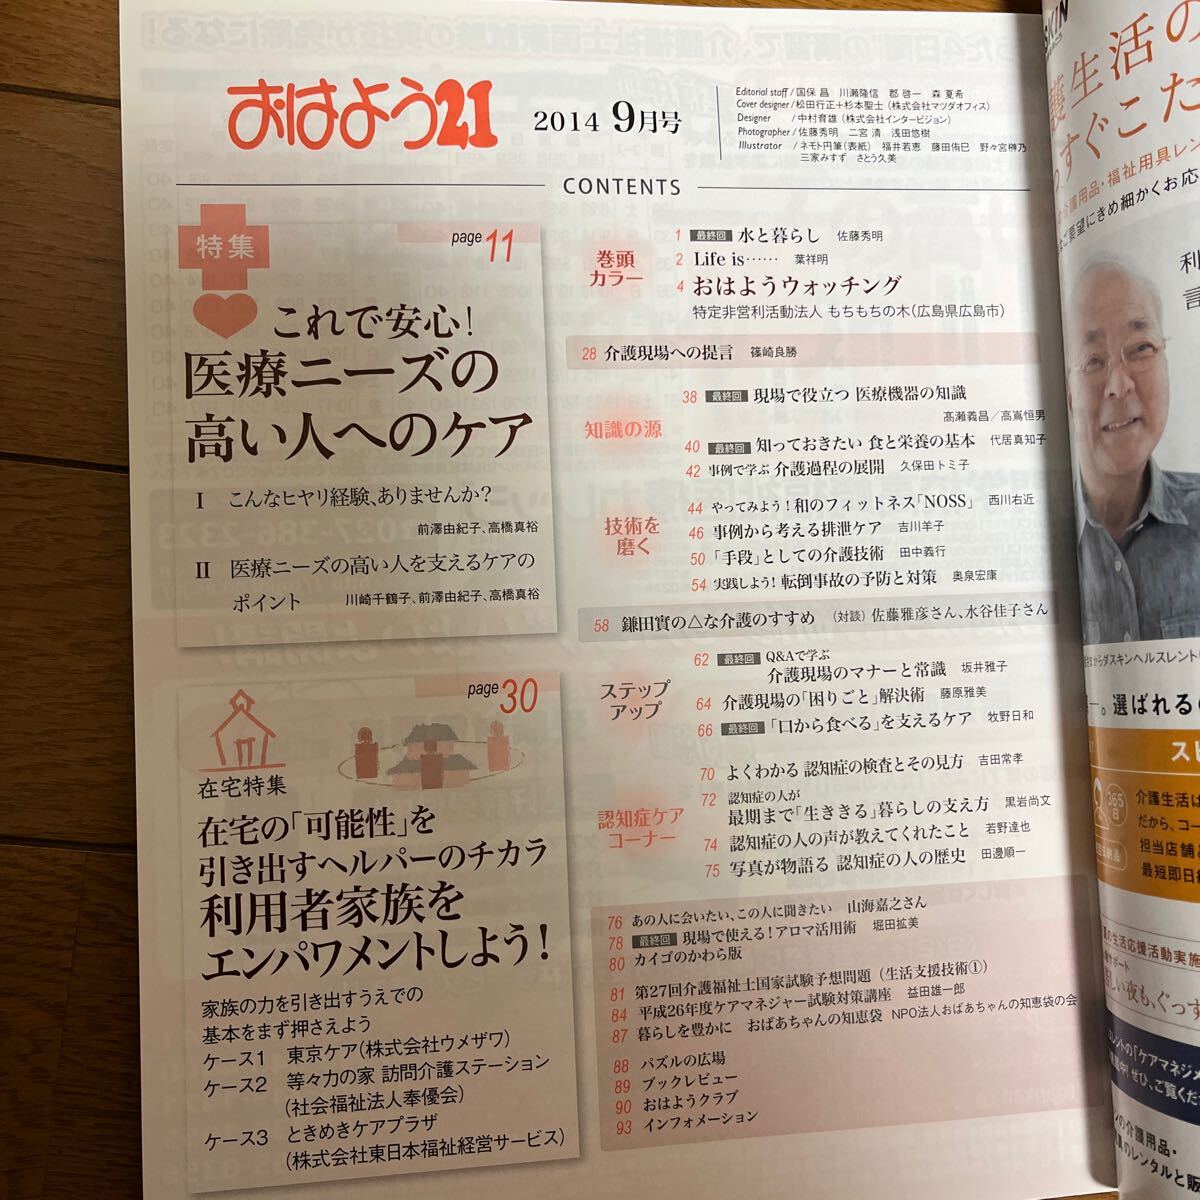 おはよう21
2014 9月号
Editorial staff / 国保 昌 川瀬隆信 郡 啓一 森 夏希
Cover designer / 松田行正＋杉本聖士（株式会社マツダオフィス）
Designer / 中村育雄（株式会社インタービジョン）
Photographer / 佐藤秀明 二宮 清 浅田悠樹
Illustrator / ネモト円筆（表紙） 福井若恵 藤田侑巳 野々宮榊乃
三家みすず さとう久美
CONTENTS
特集
page 11
これで安心！
医療ニーズの
高い人へのケア
I こんなヒヤリ経験、ありませんか？
前澤由紀子、高橋真裕
II 医療ニーズの高い人を支えるケアの
ポイント 川崎千鶴子、前澤由紀子、高橋真裕
page 30
在宅特集
在宅の「可能性」を
引き出すヘルパーのチカラ
利用者家族を
エンパワメントしよう！
家族の力を引き出すうえでの
基本をまず押さえよう
ケース1 東京ケア（株式会社ウメザワ）
ケース2 等々力の家 訪問介護ステーション
（社会福祉法人奉優会）
ケース3 ときめきケアプラザ
（株式会社東日本福祉経営サービス）
巻頭
カラー
1 最終回 水と暮らし 佐藤秀明
2 Life is…… 葉祥明
4 おはようウォッチング
特定非営利活動法人 もちもちの木（広島県広島市）
28 介護現場への提言 篠崎良勝
知識の源
38 最終回 現場で役立つ 医療機器の知識
髙瀬義昌／高嶌恒男
40 最終回 知っておきたい 食と栄養の基本 代居真知子
42 事例で学ぶ 介護過程の展開 久保田トミ子
技術を
磨く
44 やってみよう！和のフィットネス「NOSS」 西川右近
46 事例から考える排泄ケア 吉川羊子
50 「手段」としての介護技術 田中義行
54 実践しよう！転倒事故の予防と対策 奥泉宏康
58 鎌田實の△な介護のすすめ （対談）佐藤雅彦さん、水谷佳子さん
ステップ
アップ
62 最終回 Q&Aで学ぶ
介護現場のマナーと常識 坂井雅子
64 介護現場の「困りごと」解決術 藤原雅美
66 最終回 「口から食べる」を支えるケア 牧野日和
認知症ケア
コーナー
70 よくわかる 認知症の検査とその見方 吉田常孝
72 認知症の人が
最期まで「生ききる」暮らしの支え方 黒岩尚文
74 認知症の人の声が教えてくれたこと 若野達也
75 写真が物語る 認知症の人の歴史 田邊順一
76 あの人に会いたい、この人に聞きたい 山海嘉之さん
78 最終回 現場で使える！アロマ活用術 堀田拡美
80 カイゴのかわら版
81 第27回介護福祉士国家試験予想問題（生活支援技術①）
84 平成26年度ケアマネジャー試験対策講座 益田雄一郎
87 暮らしを豊かに おばあちゃんの知恵袋 NPO法人おばあちゃんの知恵袋の会
88 パズルの広場
89 ブックレビュー
90 おはようクラブ
93 インフォメーション
SKIN
護生活の
すぐこた
介護用品・福祉用具レン
ご要望にきめ細かくお応
利
言
からダスキンヘルスレント
選ばれる
スピ
365日
介護生活は
だから、コー
担当店舗と
最短即日納
の生活応援活動実施
サポート
しい夜も、ぐっす
レントの「ケアマネジメ
中！ぜひ、ご覧くだ
ンの介護用品・
具のレンタルと販